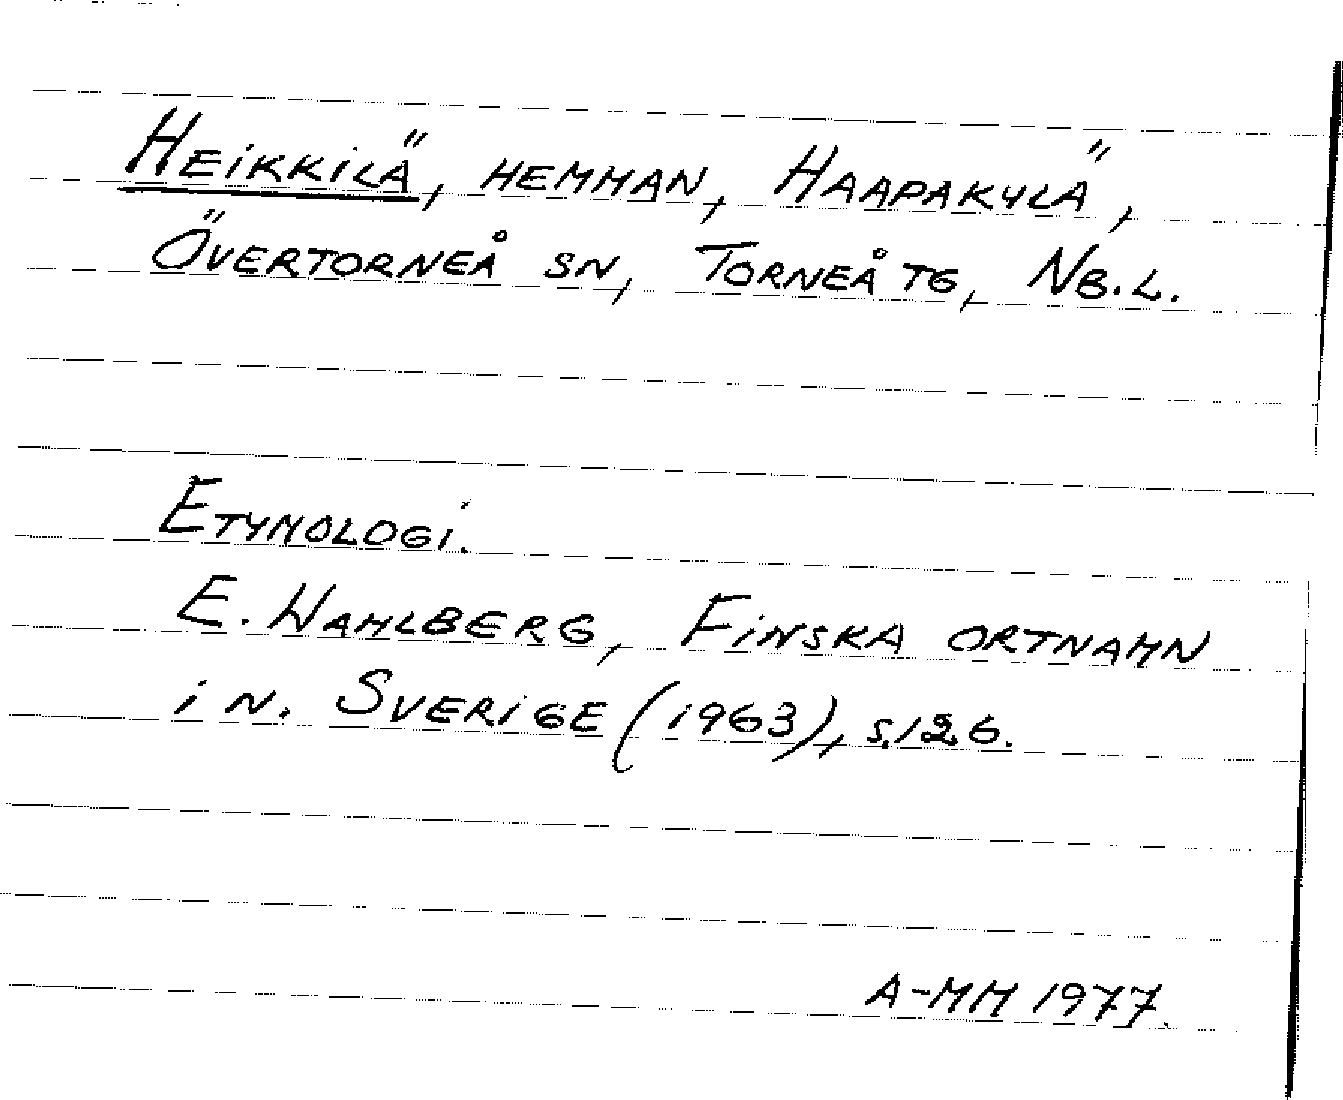 Heikkilä, hemman, Haapakylä,
Övertorneå sn, Torneå tg, Nb.l.
Etymologi.
E. Wahlberg, Finska ortnamn
i n. Sverige (1963), s.126.
A-MM 1977.